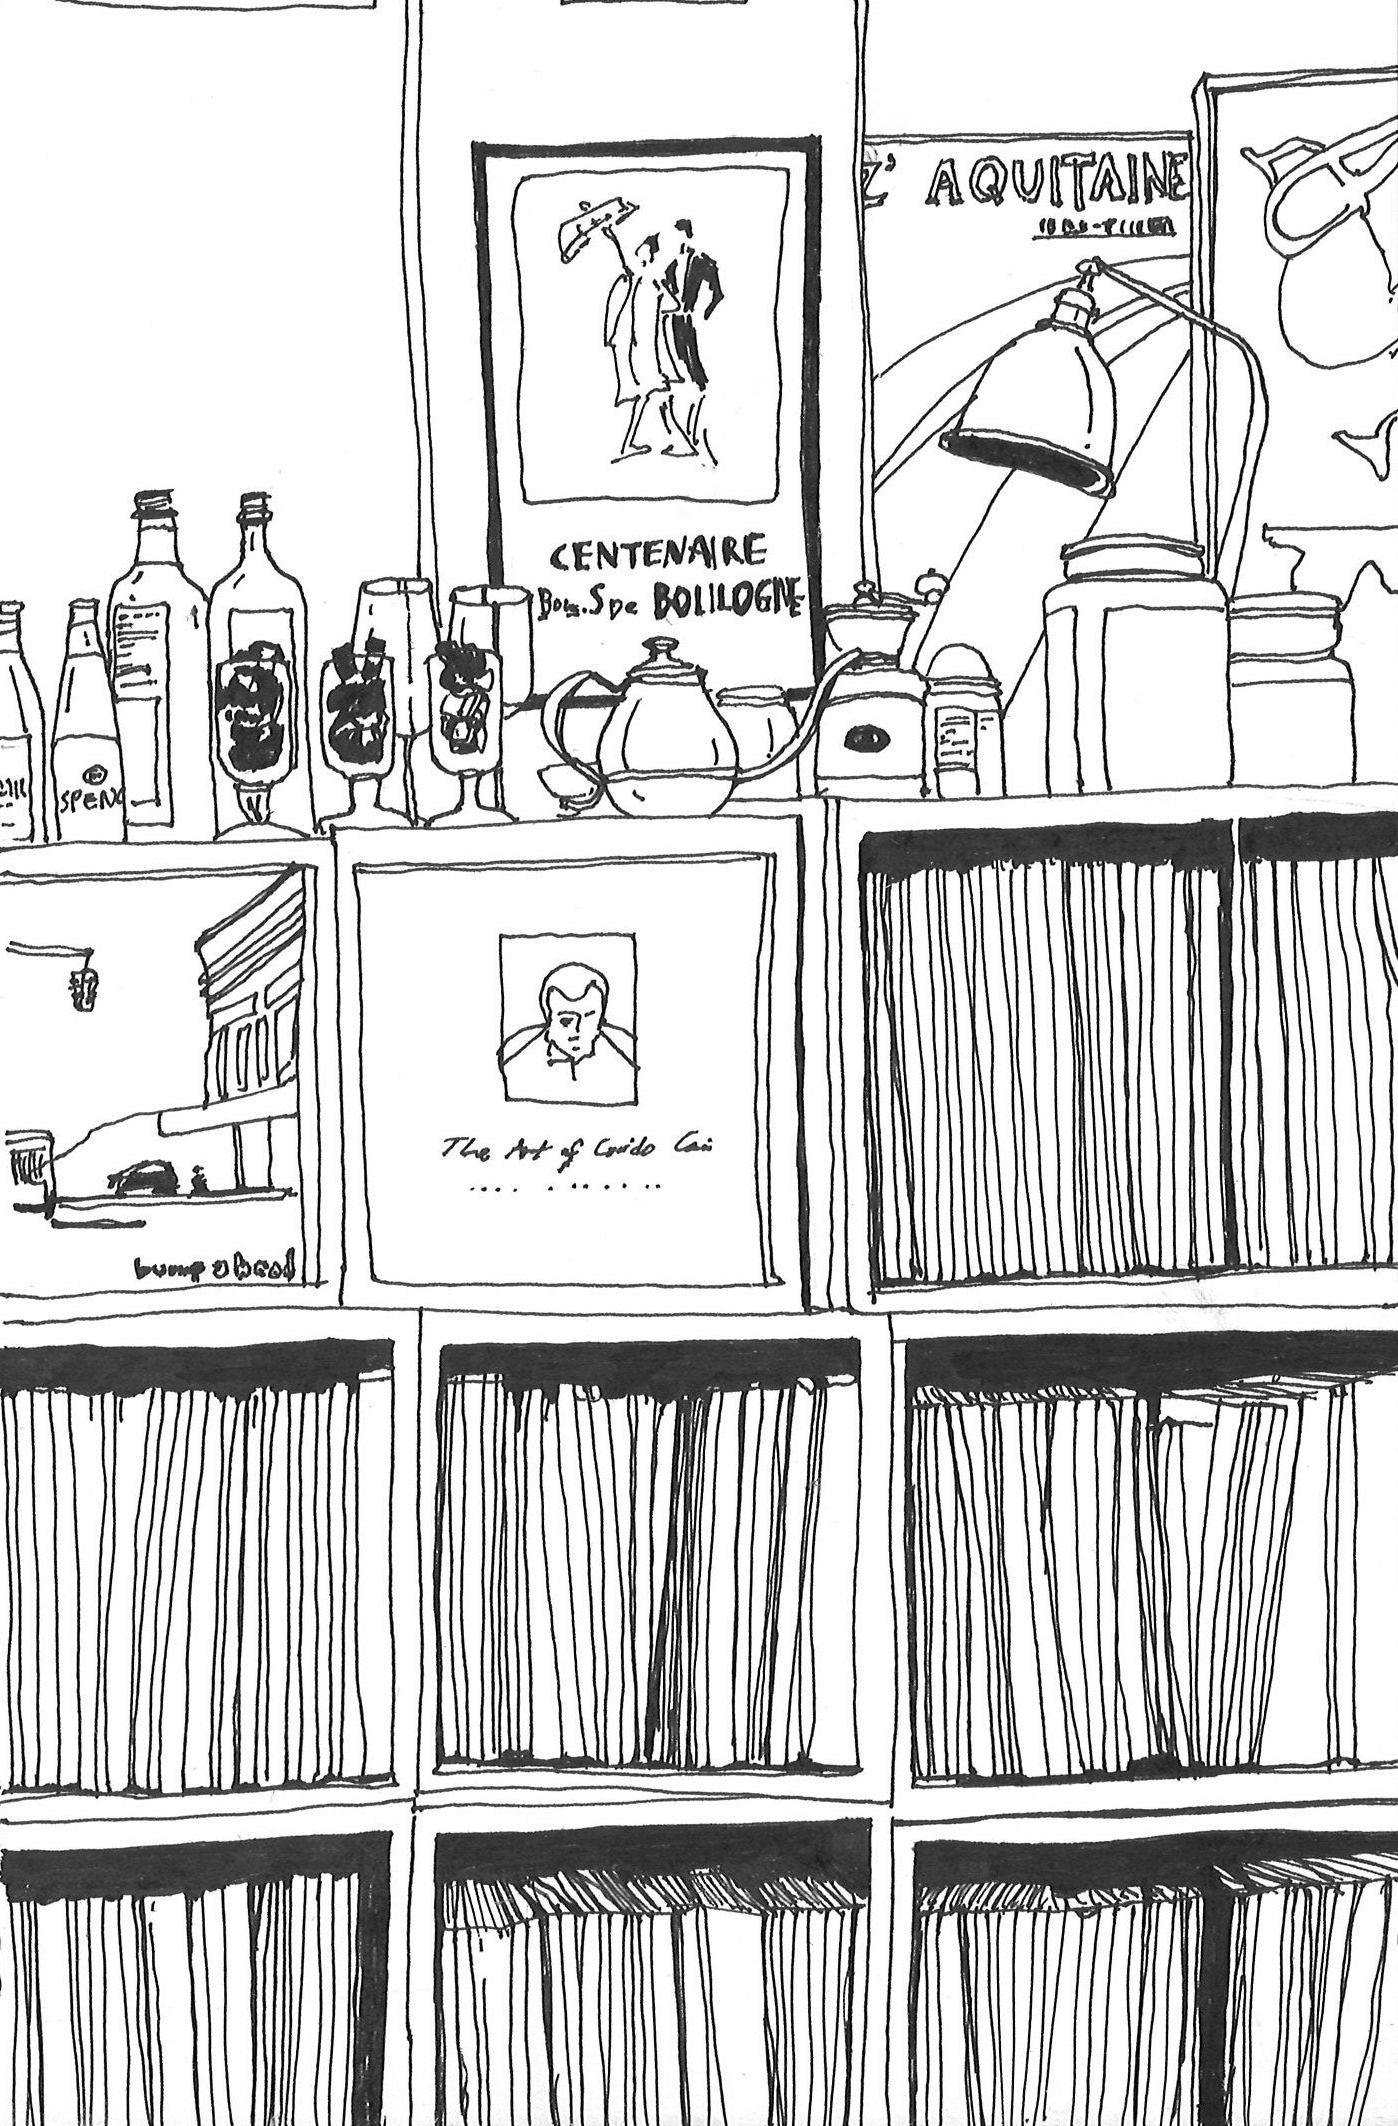 Z' AQUITAINE
CENTENAIRE
Bois. S de BOULOGNE
SPENC
The Art of Guido Cai
bump ahead